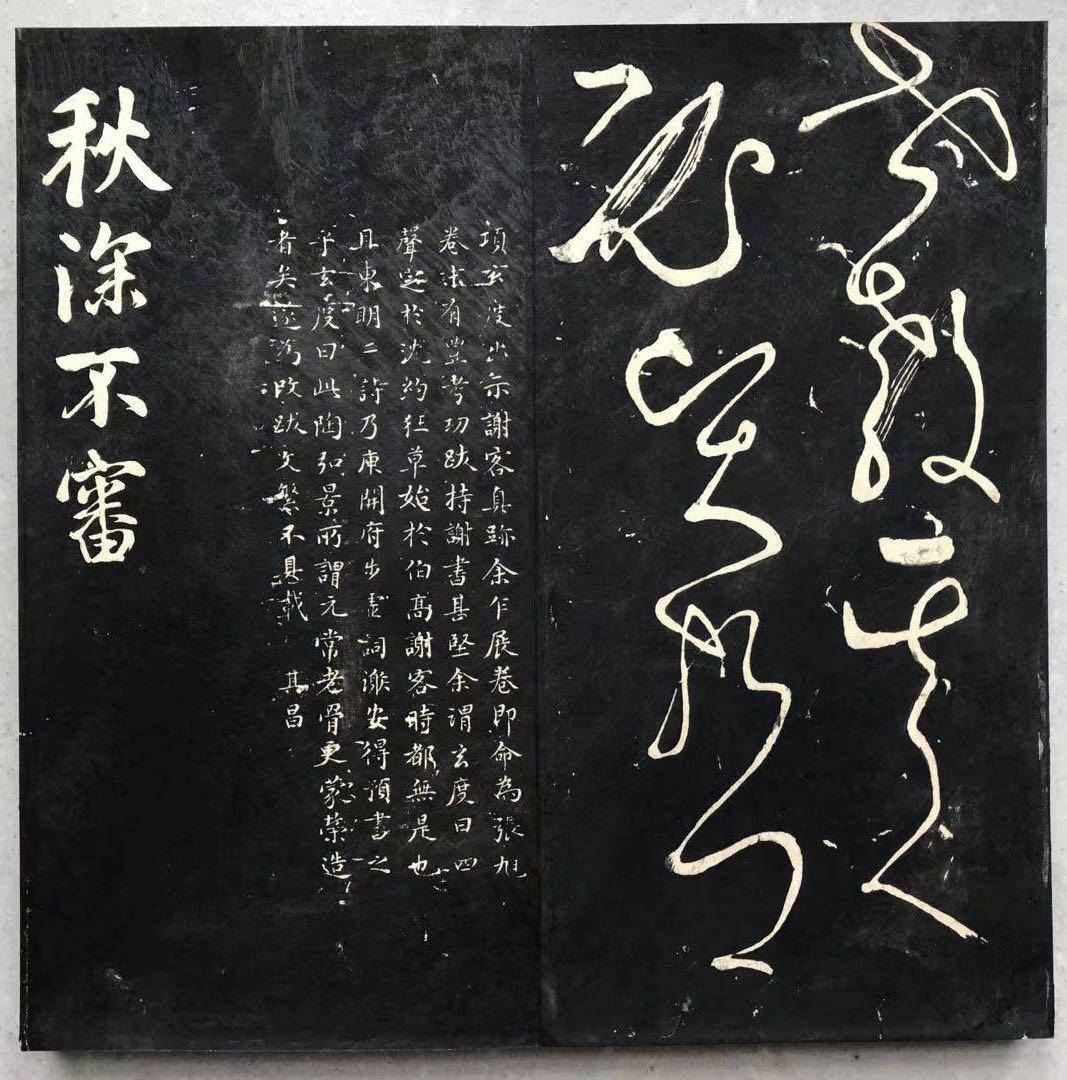 世教其人
必賢哲
項玄度出示謝客真跡余乍展卷即命為張旭
卷末有豐考功跋持謝書甚堅余謂玄度曰四
聲定於沈約狂草始於伯高謝客時都無是也
且東明二詩乃庾開府步虛詞謝安得預書之
乎玄度曰此陶弘景所謂元常老骨更蒙榮造
者矣遂為改跋文繁不具載 其昌
秋深不審